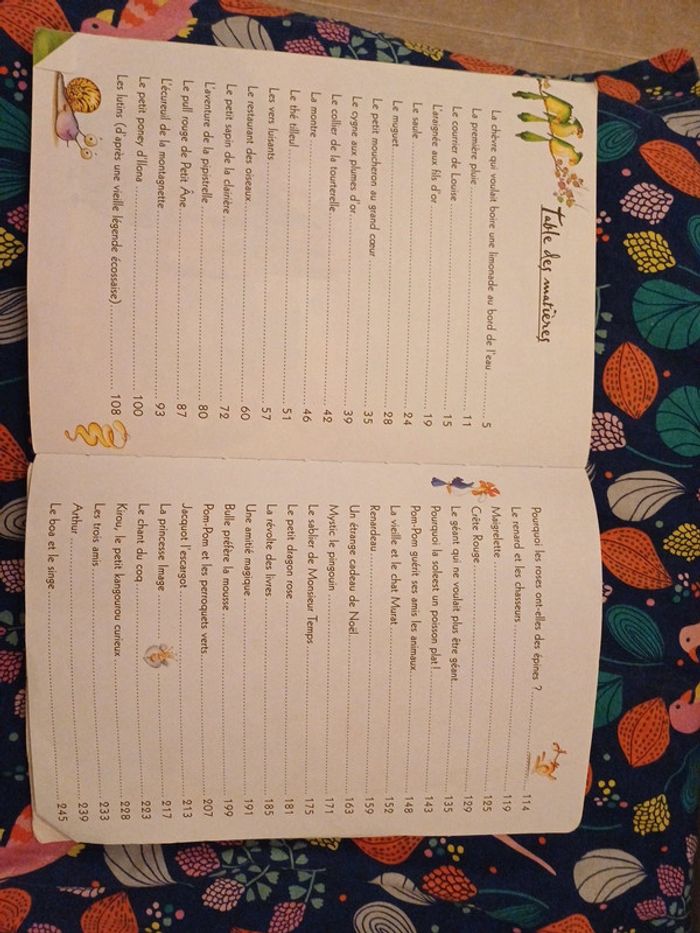 Table des matières
La chèvre qui voulait boire une limonade au bord de l'eau 5
La première pluie 11
Le courrier de Louise 15
L'araignée aux fils d'or 19
Le saule 24
Le muguet 28
Le petit moucheron au grand cœur 35
Le cygne aux plumes d'or 39
Le collier de la tourterelle 42
La montre 46
Le thé tilleul 51
Les vers luisants 57
Le restaurant des oiseaux 60
Le petit sapin de la clairière 72
L'aventure de la pipistrelle 80
Le pull rouge de Petit Âne 87
L'écureuil de la montagnette 93
Le petit poney d'Ilona 100
Les lutins (d'après une vieille légende écossaise) 108
Pourquoi les roses ont-elles des épines ? 114
Le renard et les chasseurs 119
Maigrelette 125
Crête Rouge 129
Le géant qui ne voulait plus être géant 135
Pourquoi la sole est un poisson plat ! 143
Pom-Pom guérit ses amis les animaux 148
La vieille et le chat Murat 152
Renardeau 159
Un étrange cadeau de Noël 163
Mystic le pingouin 171
Le sablier de Monsieur Temps 175
Le petit dragon rose 181
La révolte des livres 185
Une amitié magique 191
Bulle préfère la mousse 199
Pom-Pom et les perroquets verts 207
Jacquot l'escargot 213
La princesse Image 217
Le chant du coq 223
Kirou, le petit kangourou curieux 228
Les trois amis 233
Arthur 239
Le boa et le singe 245